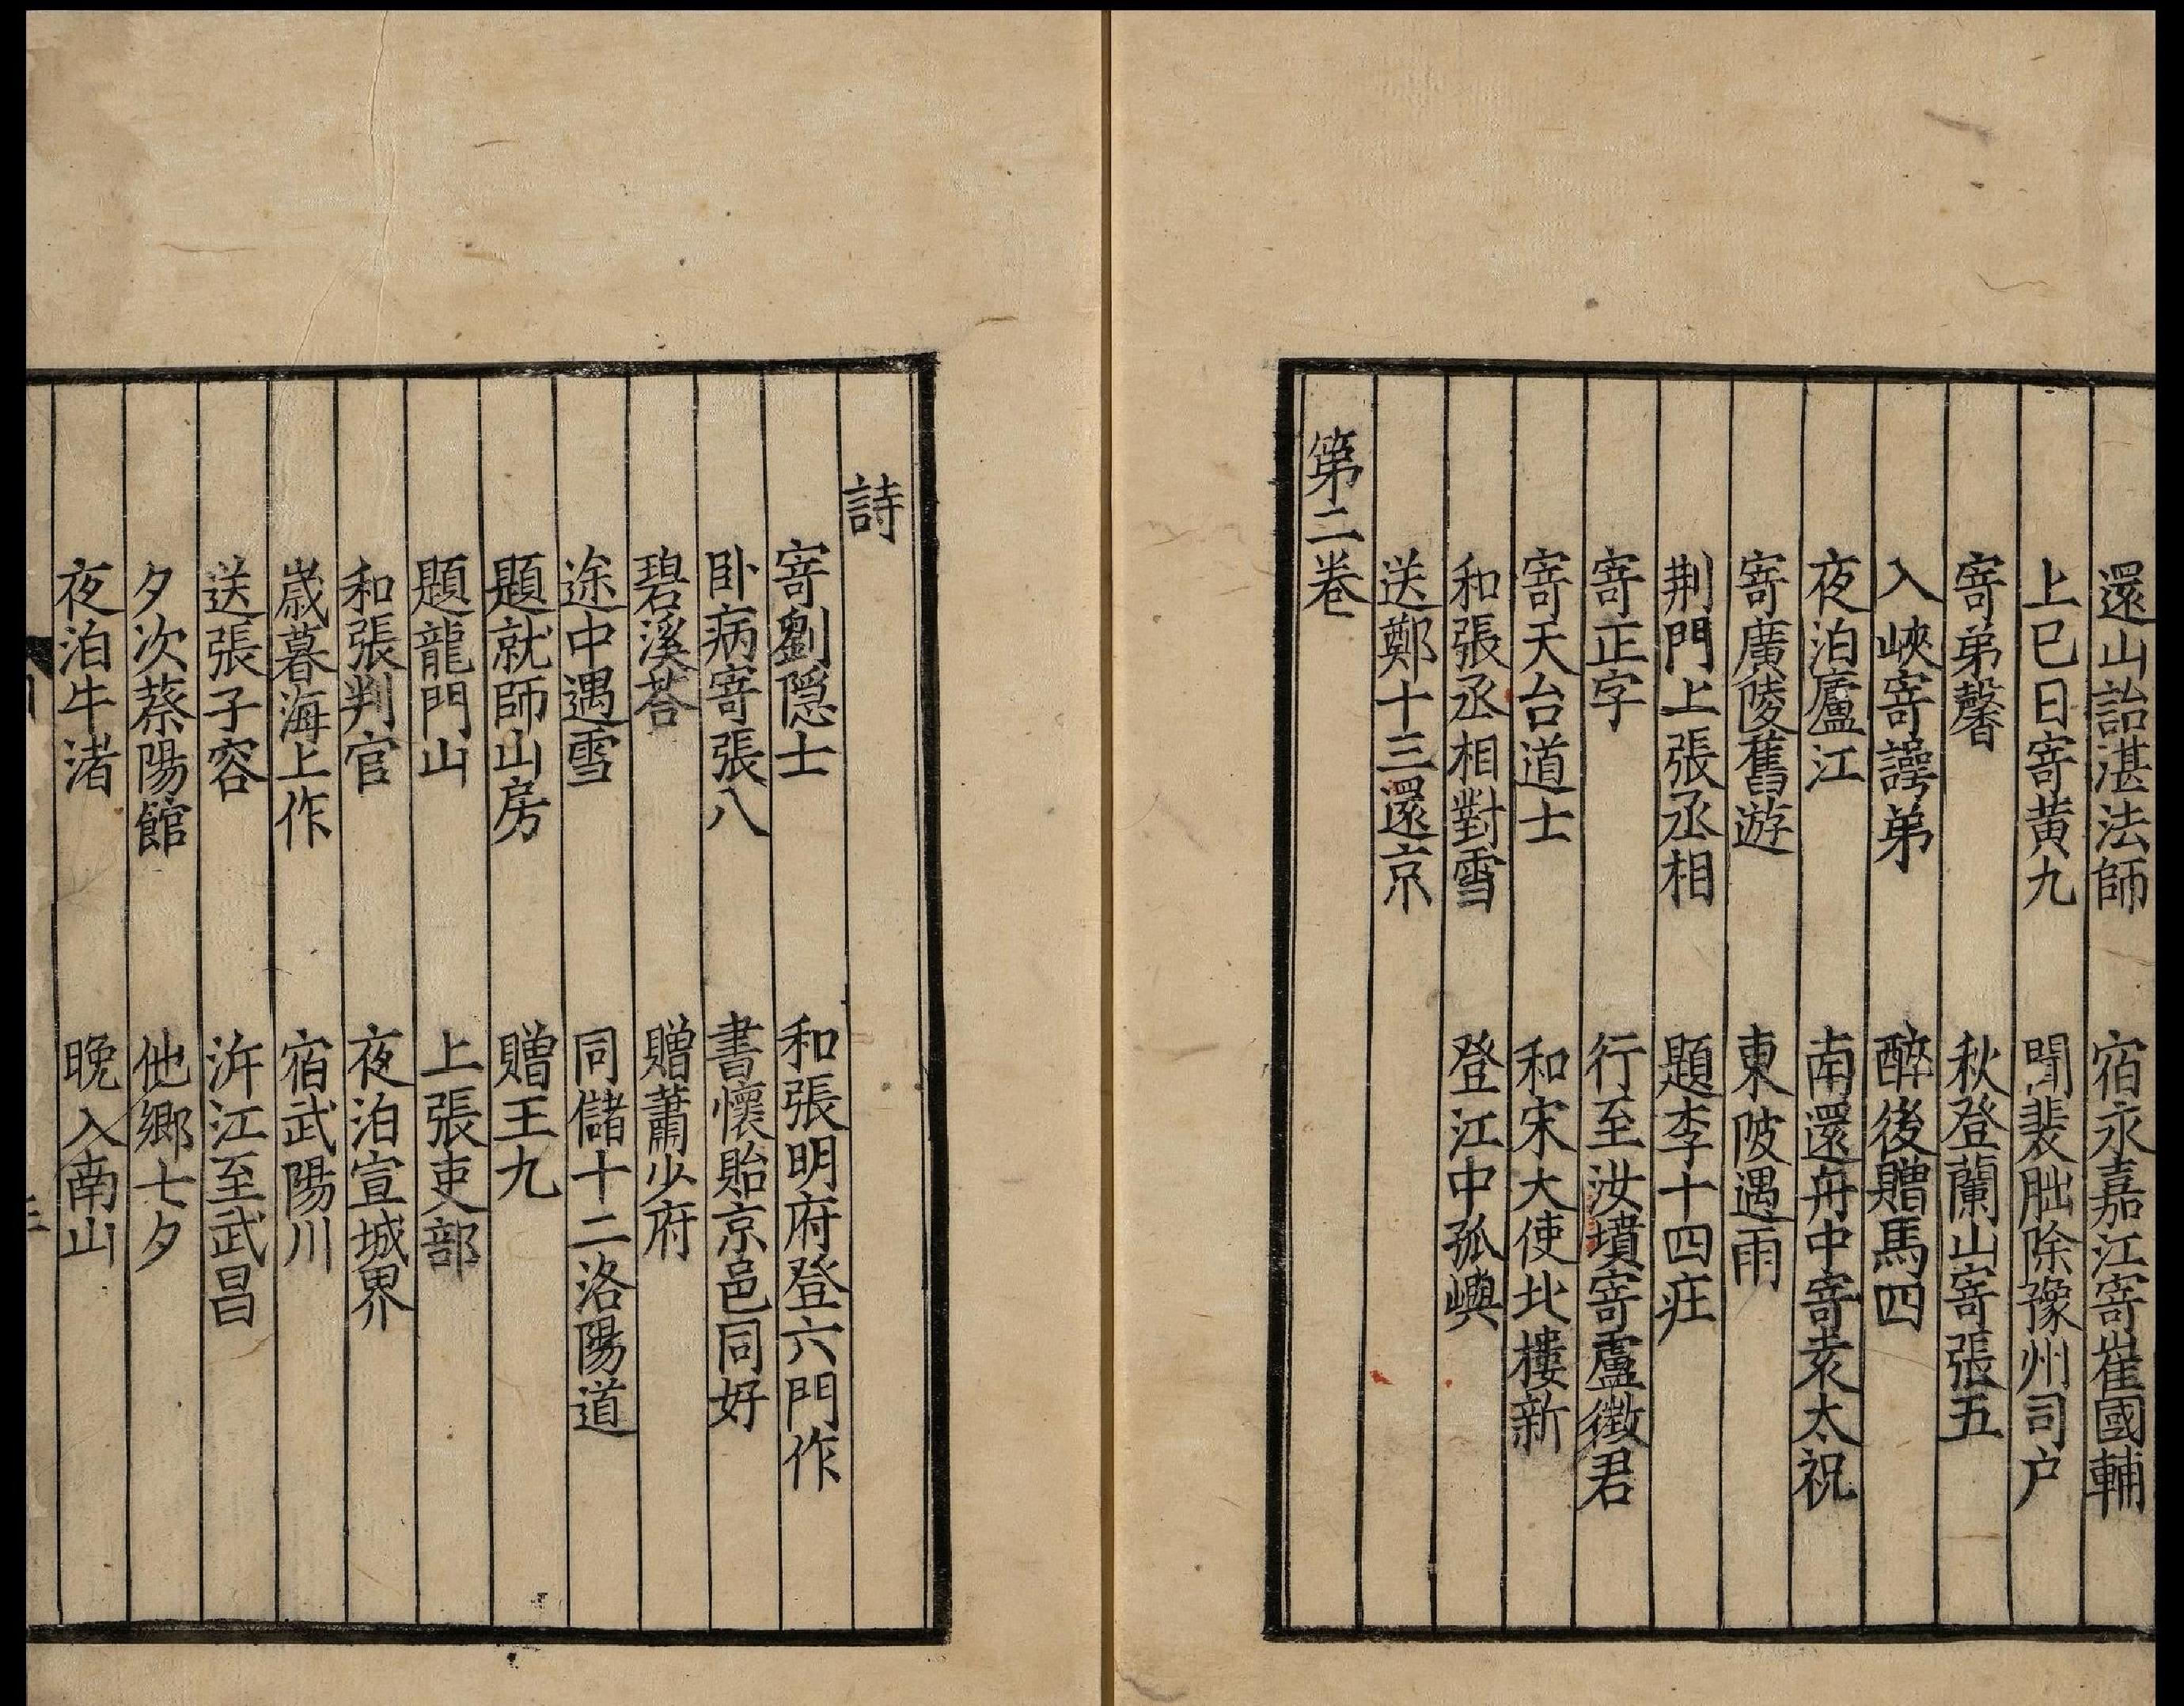 還山詒湛法師　宿永嘉江寄崔國輔
上巳日寄黄九　聞裴朏除豫州司户
寄弟馨　秋登蘭山寄張五
入峽寄謗弟　醉後贈馬四
夜泊廬江　南還舟中寄袁太祝
寄廣陵舊遊　東陂遇雨
荆門上張丞相　題李十四庄
寄正字　行至汝墳寄盧徵君
寄天台道士　和宋大使北樓新
和張丞相對雪　登江中孤嶼
送鄭十三還京
第二卷
詩
寄劉隱士　和張明府登六門作
卧病寄張八　書懷貽京邑同好
碧溪荅　贈蕭少府
途中遇雪　同儲十二洛陽道
題就師山房　贈王九
題龍門山　上張吏部
和張判官　夜泊宣城界
歲暮海上作　宿武陽川
送張子容　泝江至武昌
夕次蔡陽館　他鄉七夕
夜泊牛渚　晚入南山